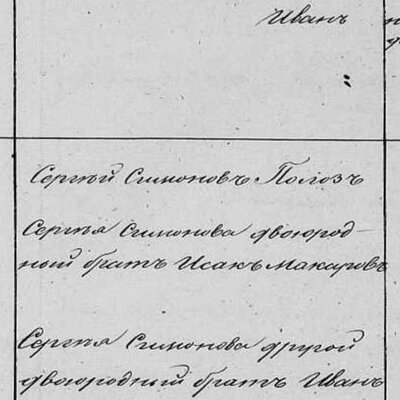 Иванъ
"
Сергѣй Симоновъ Полозъ
Сергѣя Симонова двоюрод-
ный братъ Исакъ Макаровъ
Сергѣя Симонова другой
двоюродный братъ Иванъ